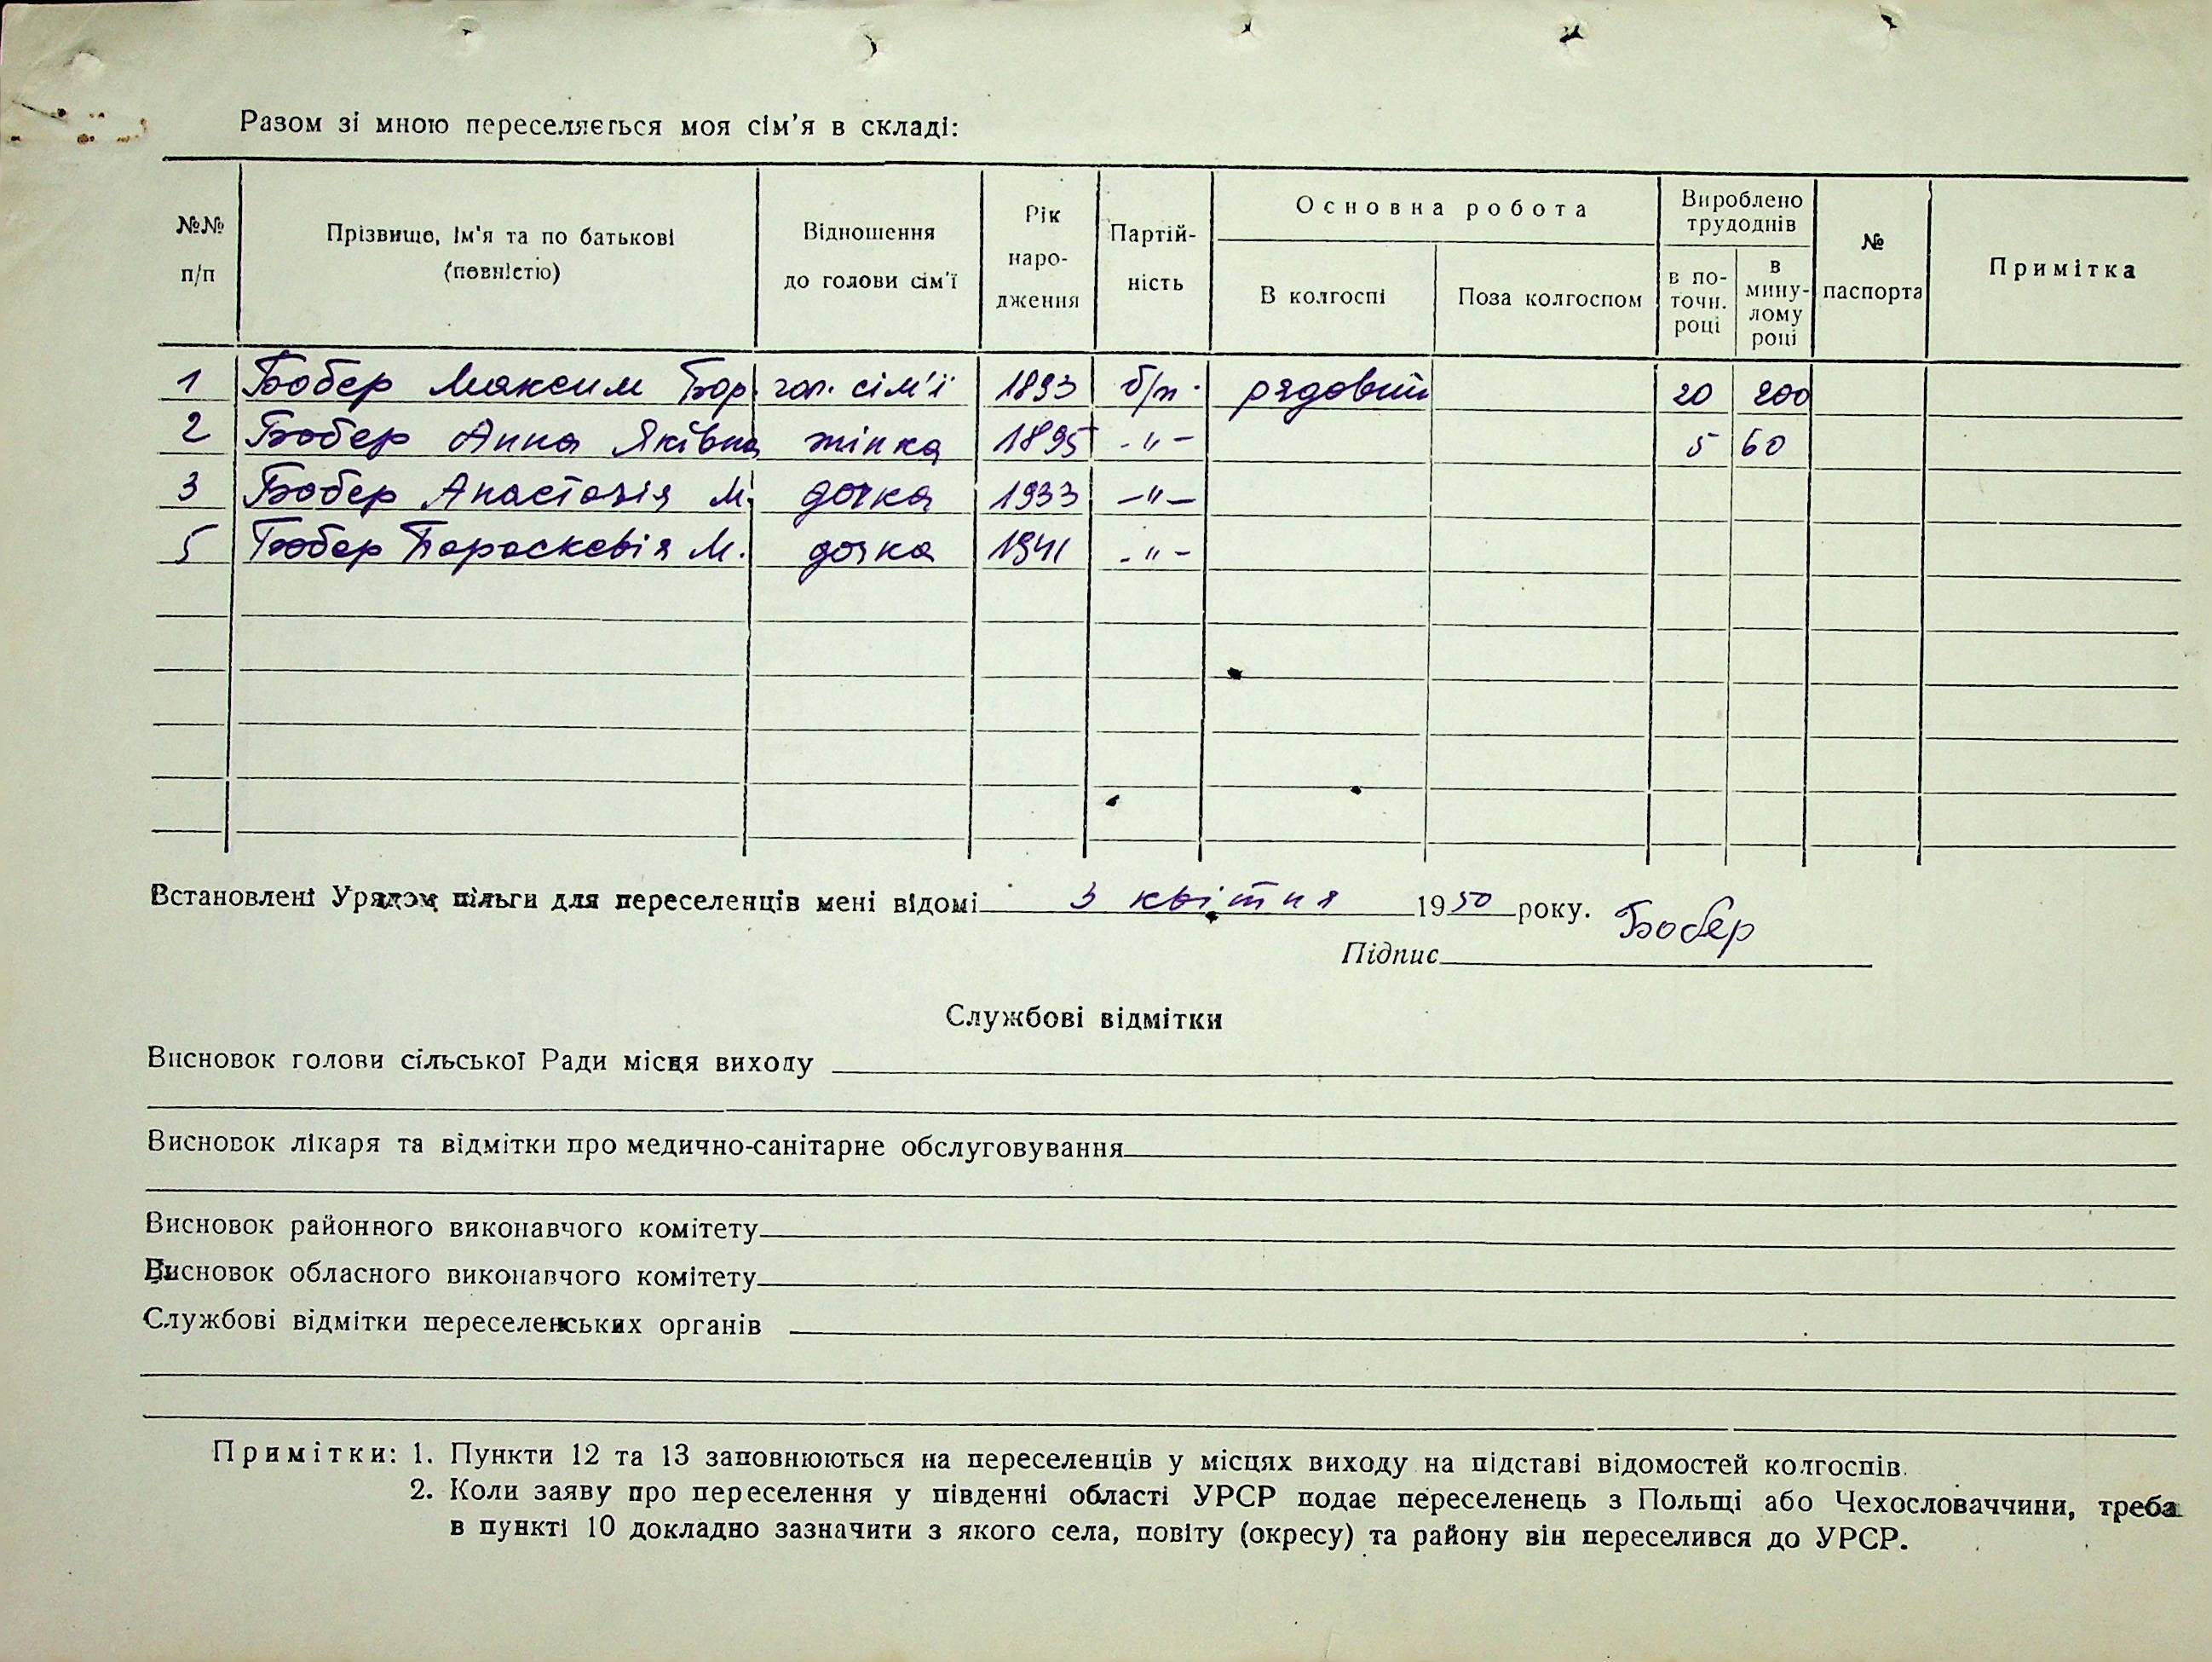 Разом зі мною переселяється моя сім'я в складі:
№№ п/п
Прізвище, ім'я та по батькові (повністю)
Відношення до голови сім'ї
Рік народження
Партійність
Основна робота
В колгоспі
Поза колгоспом
Вироблено трудоднів
в поточн. році
в минулому році
№ паспорта
Примітка
1 Бобер Максим Бор. гол. сім'ї 1893 б/п. рядовий 20 200
2 Бобер Анна Яківна жінка 1895 -"- 5 60
3 Бобер Анастазія М. дочка 1933 -"-
5 Бобер Параскевія М. дочка 1941 -"-
Встановлені Урядом пільги для переселенців мені відомі 3 квітня 1950 року. Бобер
Підпис
Службові відмітки
Висновок голови сільської Ради місця виходу
Висновок лікаря та відмітки про медично-санітарне обслуговування
Висновок районного виконавчого комітету
Висновок обласного виконавчого комітету
Службові відмітки переселенських органів
Примітки: 1. Пункти 12 та 13 заповнюються на переселенців у місцях виходу на підставі відомостей колгоспів.
2. Коли заяву про переселення у південні області УРСР подає переселенець з Польщі або Чехословаччини, треба
в пункті 10 докладно зазначити з якого села, повіту (окресу) та району він переселився до УРСР.